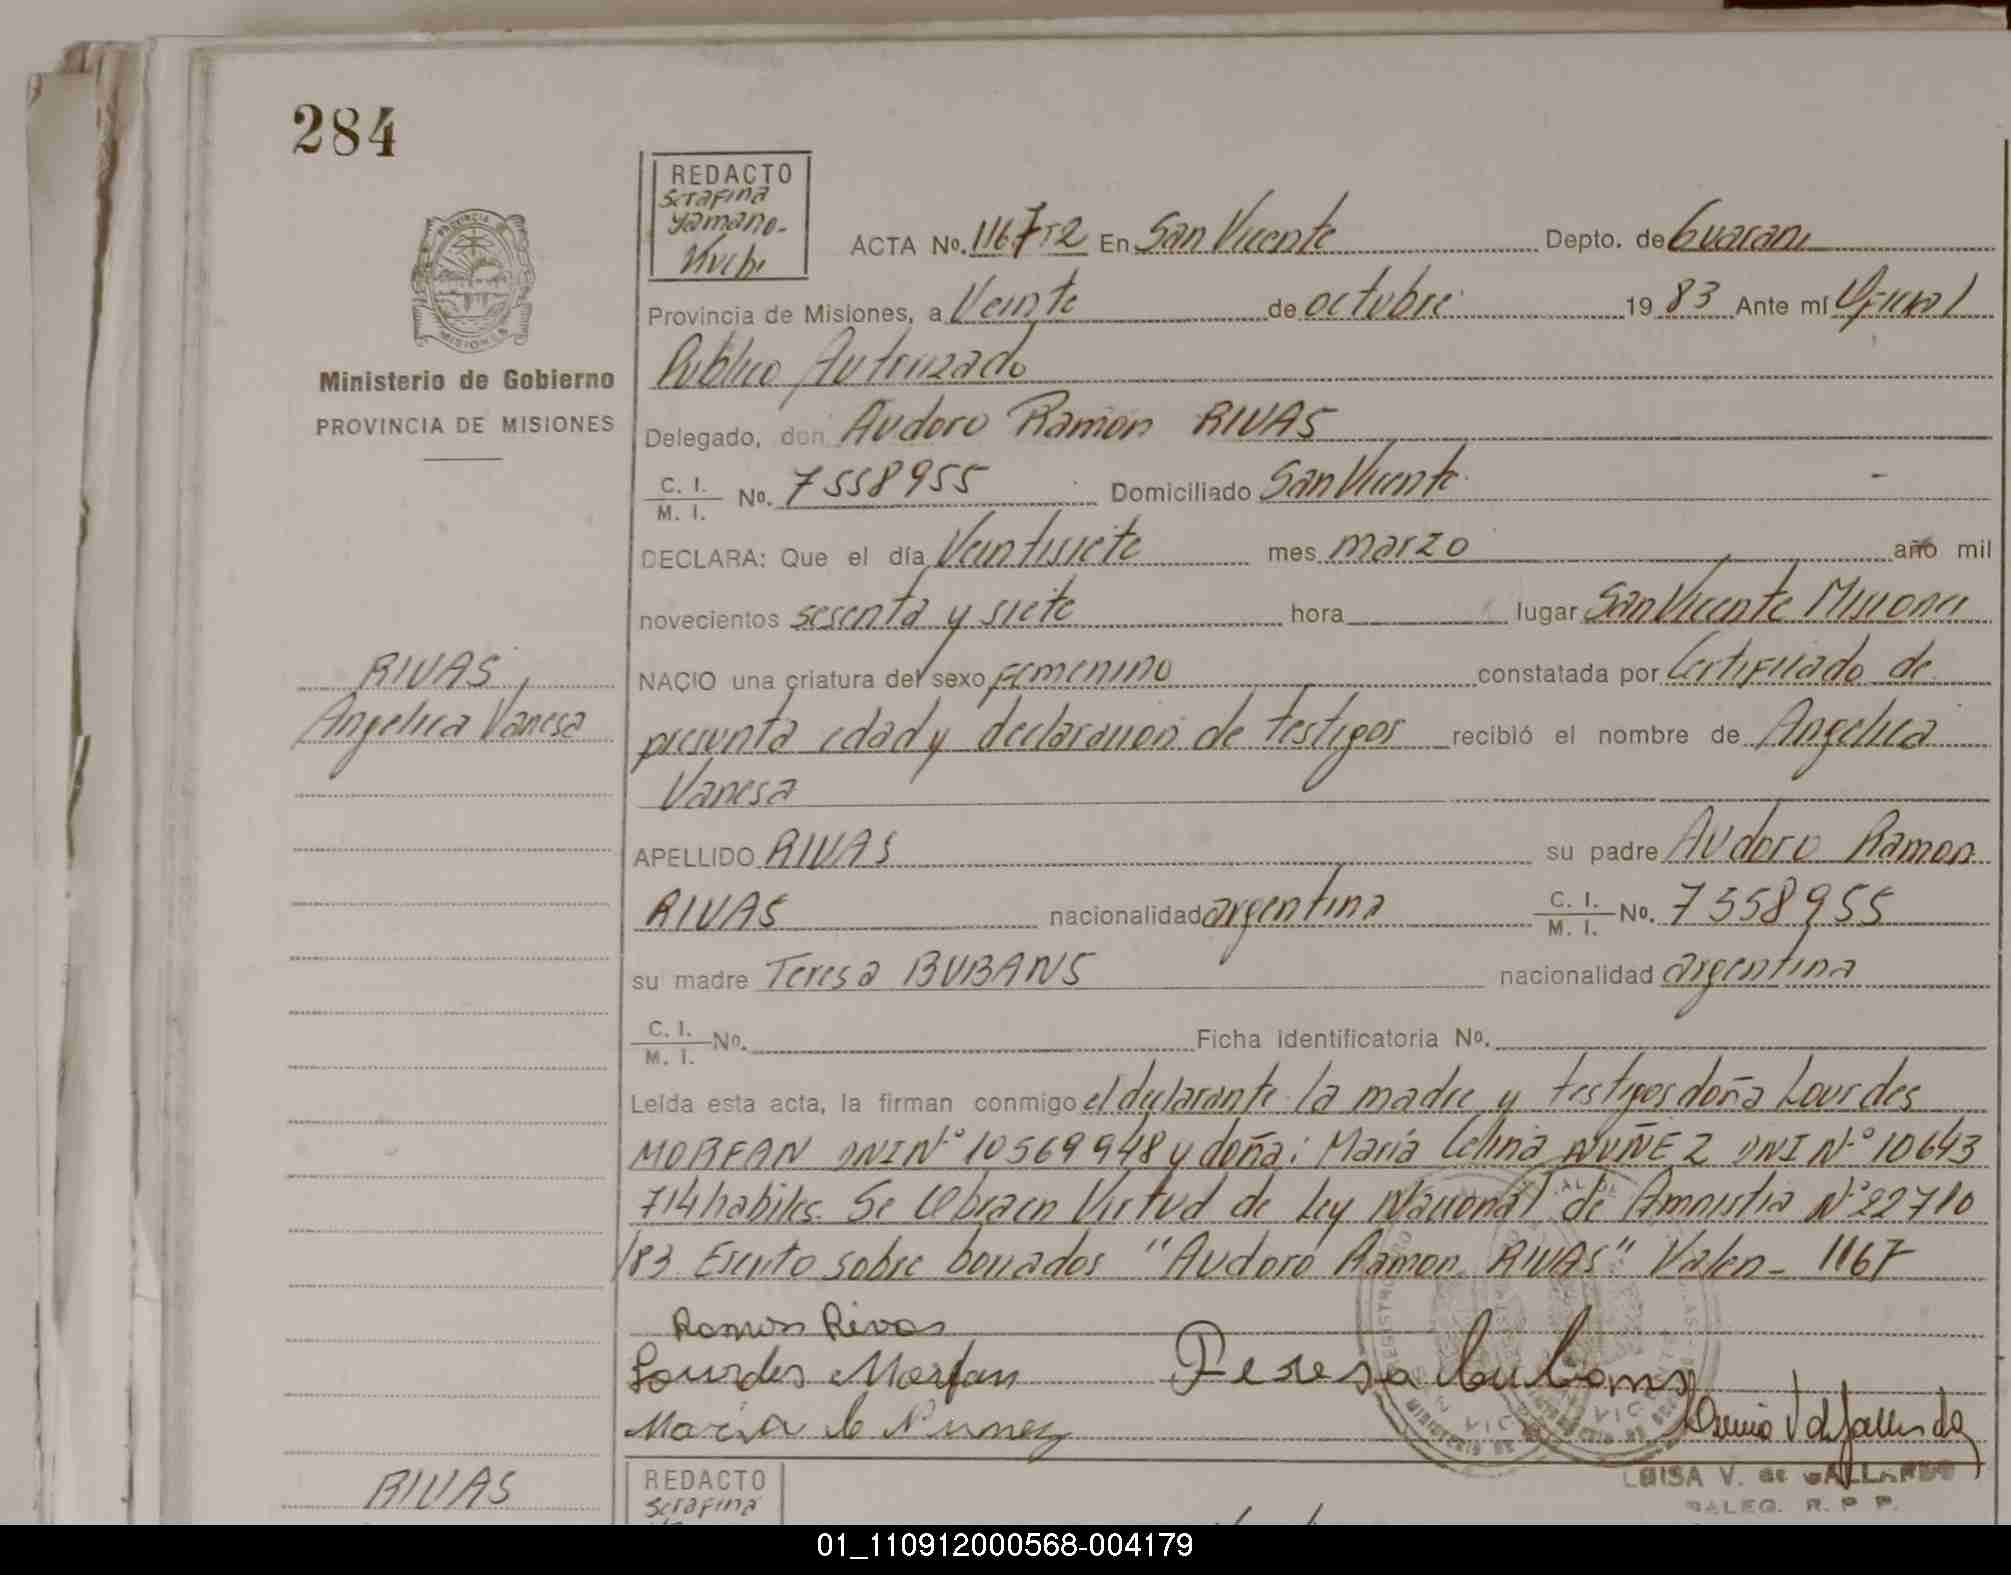 284
REDACTO
Serafina
Yamano-
Kuchi
ACTA No. 1167 T2 En San Vicente Depto. de Guarani
Provincia de Misiones, a Veinte de octubre 19 83 Ante mí Oficial
Publico Autorizado
Ministerio de Gobierno
PROVINCIA DE MISIONES
Delegado, don Audoro Ramon RIVAS
C. I. / M. I. No. 7558955 Domiciliado San Vicente
DECLARA: Que el día Veintisiete mes marzo año mil
novecientos sesenta y siete hora lugar San Vicente Misiones
RIVAS
Angelica Vanesa
NACIO una criatura del sexo femenino constatada por Certificado de
presunta edad y declaracion de testigos recibió el nombre de Angelica
Vanesa
APELLIDO RIVAS su padre Audoro Ramon
RIVAS nacionalidad argentina C. I. / M. I. No. 7558955
su madre Teresa BUBANS nacionalidad argentina
C. I. / M. I. No. Ficha identificatoria No.
Leída esta acta, la firman conmigo el declarante la madre y testigos doña Lourdes
MORFAN DNI Nº 10569948 y doña: María Celina NUÑEZ DNI Nº 10643
714 habiles. Se labra en Virtud de Ley Nacional de Amnistia Nº 22710
/83 Escrito sobre borrados "Audoro Ramon RIVAS" Valen- 1167
Ramon Rivas
Lourdes Morfan Teresa bubans
Maria C Nunez
LUISA V. de GALLARDO
DALEG. R. P. P.
RIVAS
REDACTO
Serafina
01_110912000568-004179